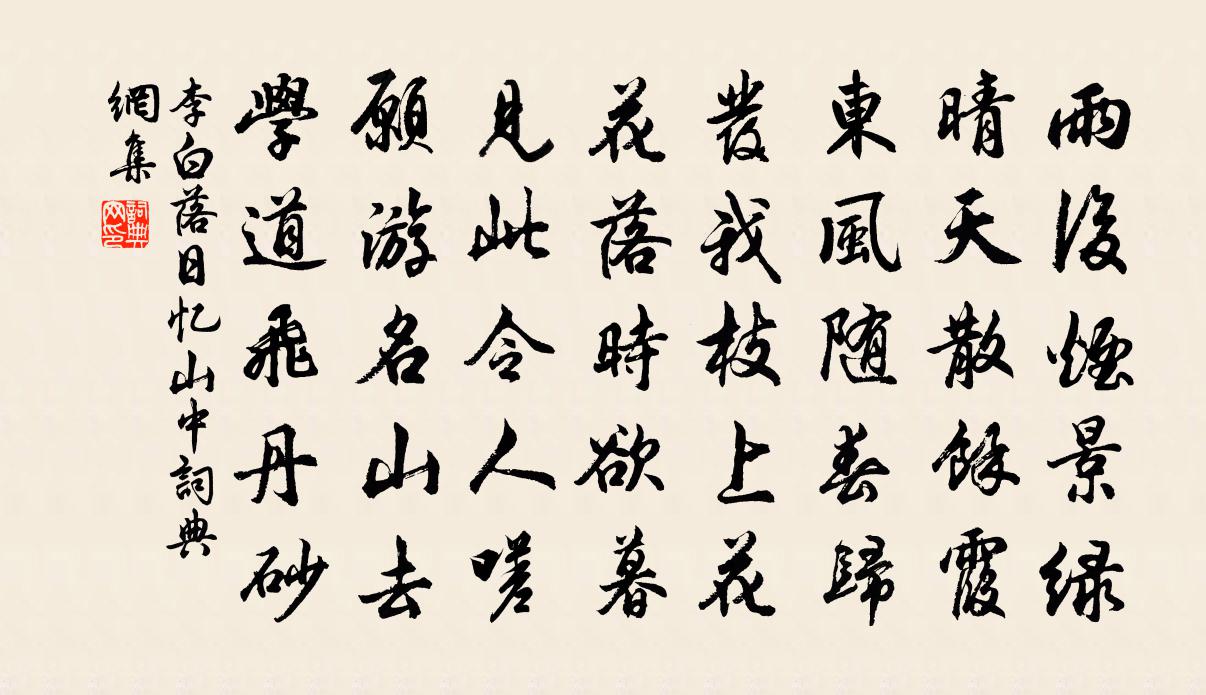 雨後煙景緑
晴天散餘霞
東風随春歸
發我枝上花
花落時欲暮
見此令人嗟
願游名山去
學道飛丹砂
李白落日忆山中詞典
網集
詞典网印